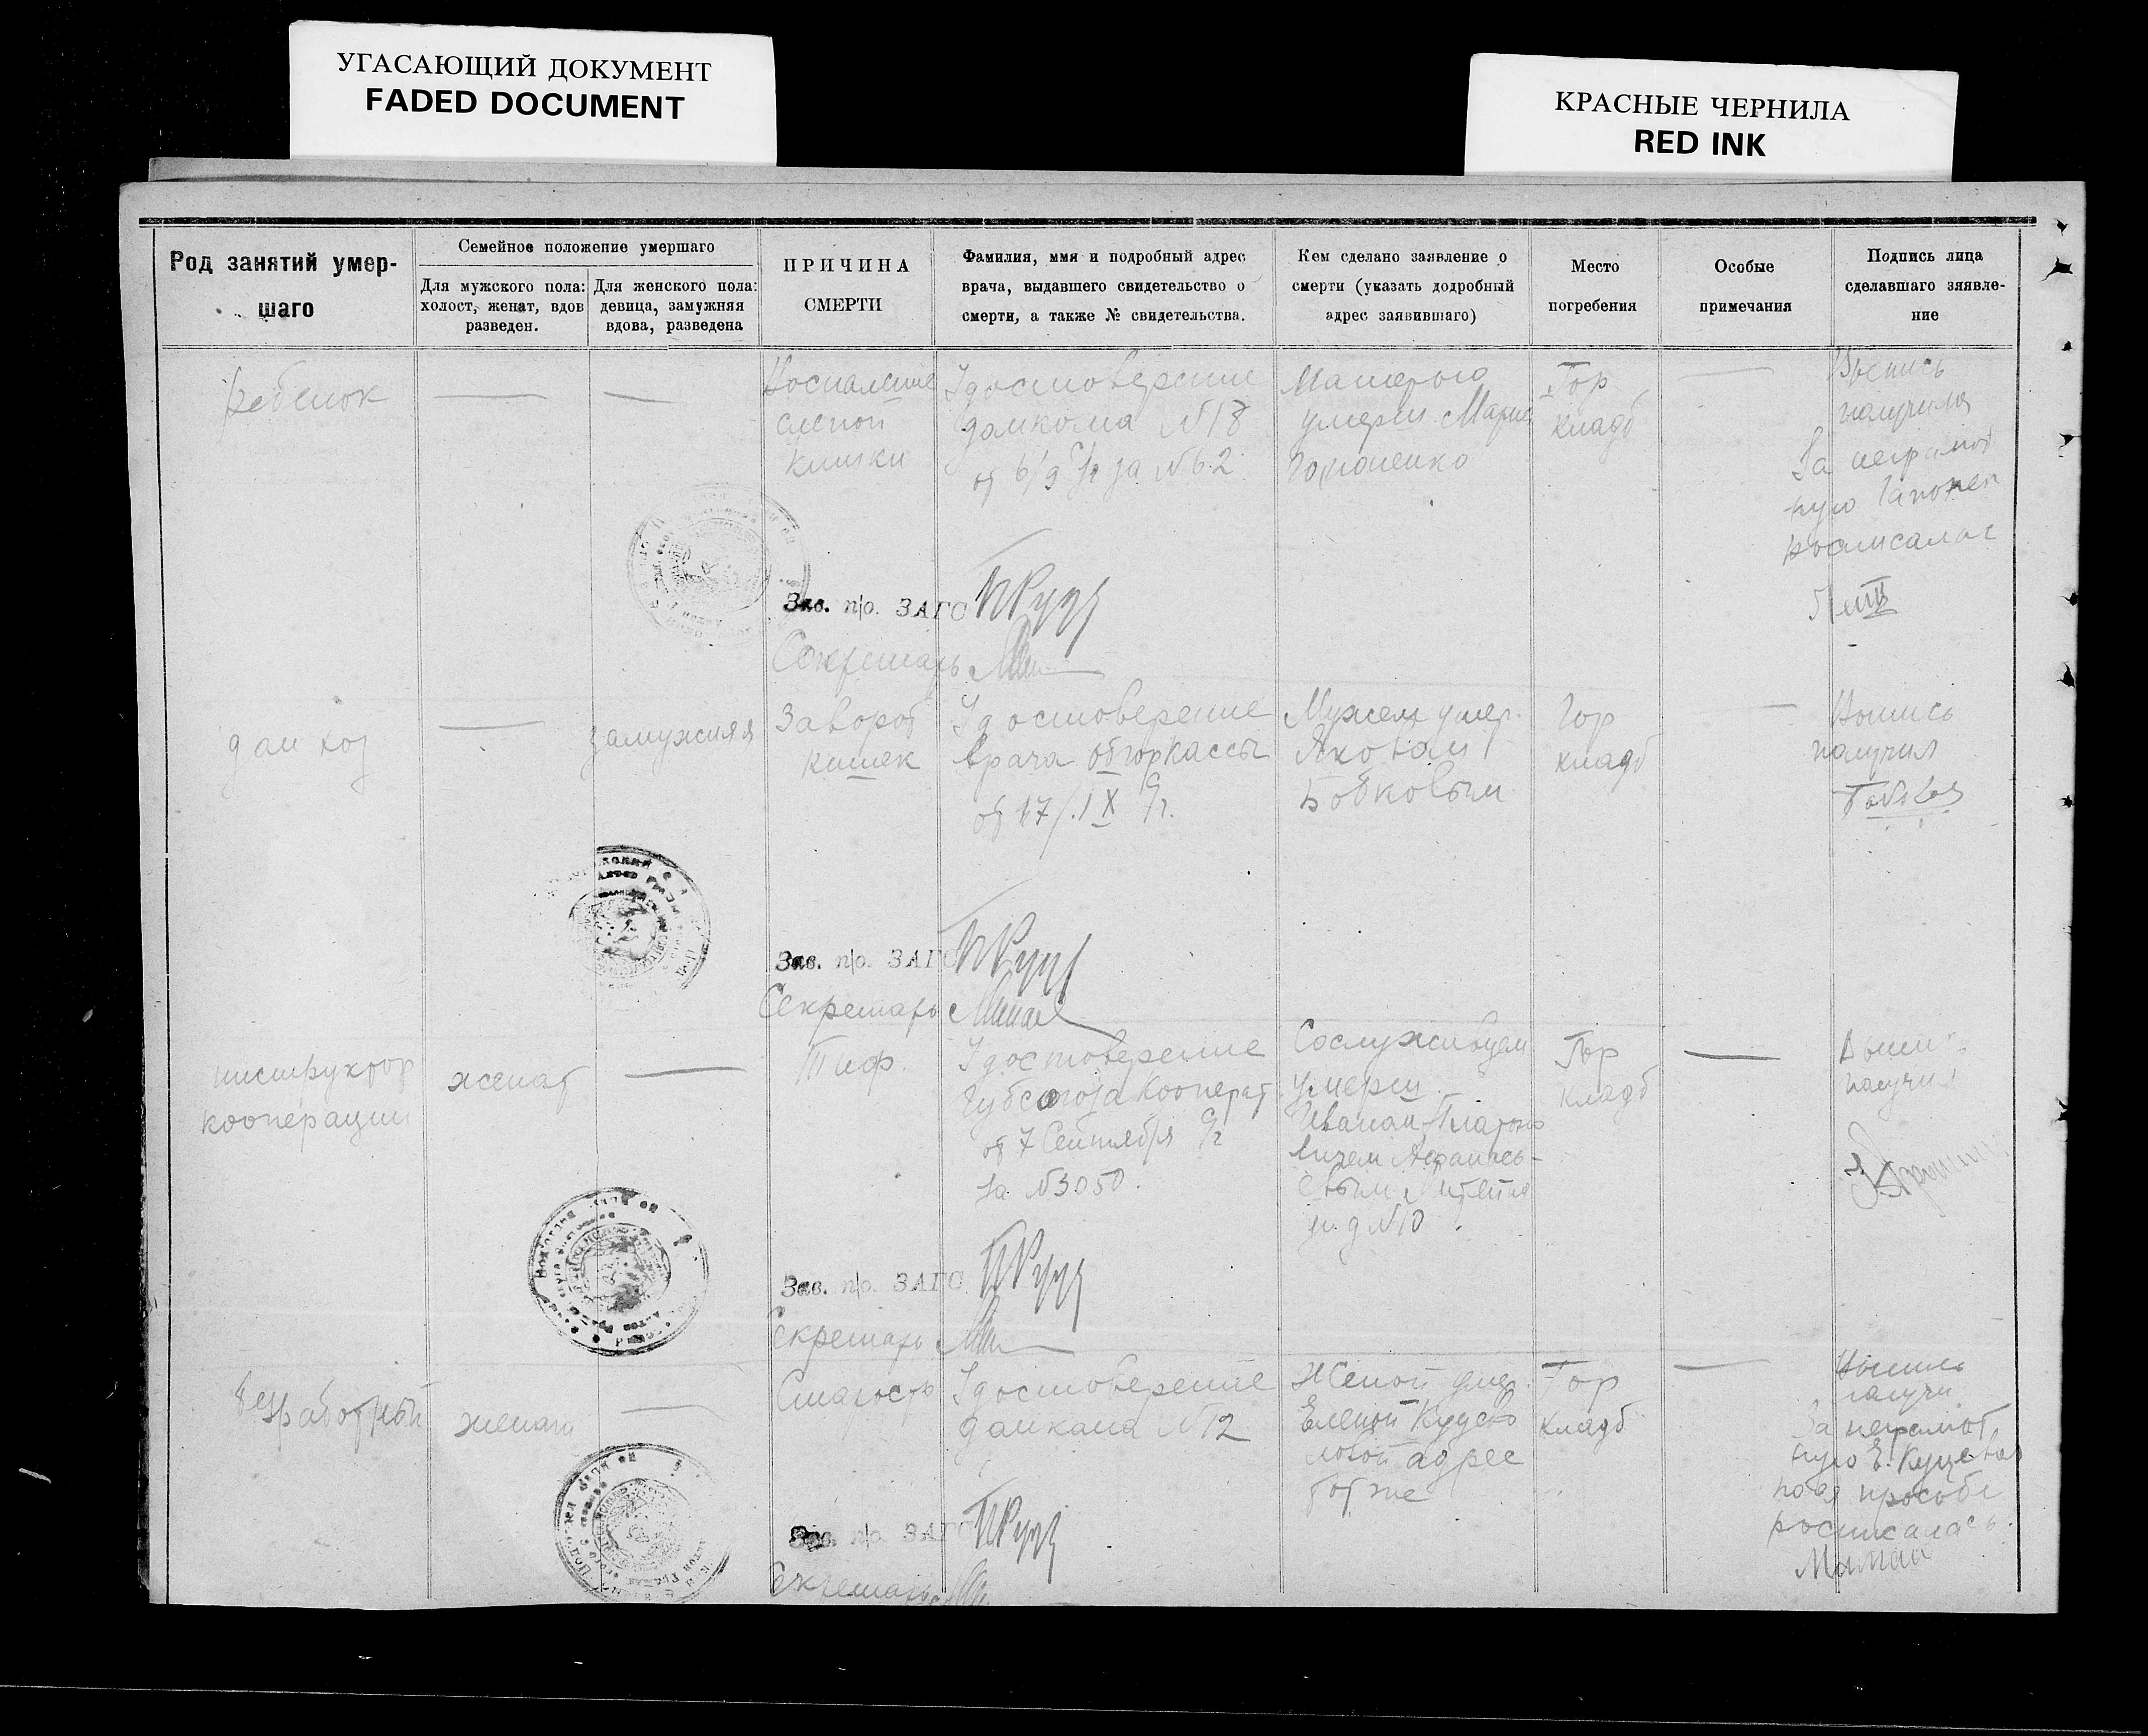 УГАСАЮЩИЙ ДОКУМЕНТ
FADED DOCUMENT
КРАСНЫЕ ЧЕРНИЛА
RED INK
Род занятий умер-
шаго
Семейное положение умершаго
Для мужского пола:
холост, женат, вдов
разведен.
Для женского пола:
девица, замужняя
вдова, разведена
ПРИЧИНА
СМЕРТИ
Фамилия, имя и подробный адрес
врача, выдавшего свидетельство о
смерти, а также № свидетельства.
Кем сделано заявление о
смерти (указать додробный
адрес заявившаго)
Место
погребения
Особые
примечания
Подпись лица
сделавшаго зяявле-
ние
Ребенок
—
—
Воспаление
слепой
кишки
Удостоверение
домкома №18
от 6/9 с/г за №62
Матерью
умерш. Марие
Гор
кладб
—
Выпись
получила
За неграмот
ную Гапонен
росписалас
Зав. п/о. ЗАГС
Секретарь
дом хоз
—
замужняя
Заворот
кишек
Удостоверение
врача
от 17/IX с/г.
Мужем умер.
Яковом
Бобковым
Гор
кладб
—
Выпись
получил
Бобков
Зав. п/о. ЗАГС
Секретарь
инструктор
кооперации
женат
—
Тиф.
Удостоверение
Губсоюза Кооперат
от 7 Сентября с/г
за №3050.
Сослуживцем
умерш.
Иваном Платоно
вичем Афанась-
евым
ул. д №10
Гор
кладб
—
получил
Зав. п/о. ЗАГС
Секретарь
безработный
женат
—
Старость
Удостоверение
домкома №12
Женой умер.
Еленой Куцево
ловой адрес
тот же
Гор
кладб
—
Выпись
получи
За неграмот
ную Е. Куцевол
пробе
росписалась.
Зав. п/о. ЗАГС
Секретарь